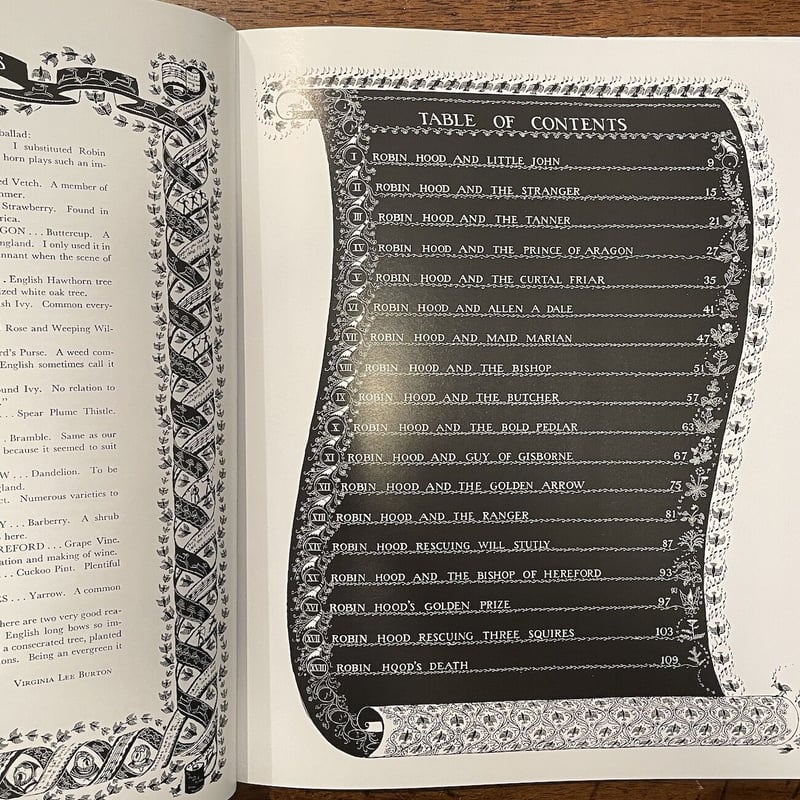 S
ballad:
I substituted Robin
horn plays such an im-
ed Vetch. A member of
mmer.
Strawberry. Found in
rica.
GON . . . Buttercup. A
England. I only used it in
nnant when the scene of
. English Hawthorn tree
ized white oak tree.
sh Ivy. Common every-
Rose and Weeping Wil-
rd's Purse. A weed com-
English sometimes call it
ound Ivy. No relation to
."
. . . Spear Plume Thistle.
. Bramble. Same as our
because it seemed to suit
W . . . Dandelion. To be
gland.
ct. Numerous varieties to
Y . . . Barberry. A shrub
s here.
EREFORD . . . Grape Vine.
ation and making of wine.
. . . Cuckoo Pint. Plentiful
ES . . . Yarrow. A common
here are two very good rea-
English long bows so im-
a consecrated tree, planted
ons. Being an evergreen it
VIRGINIA LEE BURTON
TABLE OF CONTENTS
I ROBIN HOOD AND LITTLE JOHN 9
II ROBIN HOOD AND THE STRANGER 15
III ROBIN HOOD AND THE TANNER 21
IV ROBIN HOOD AND THE PRINCE OF ARAGON 27
V ROBIN HOOD AND THE CURTAL FRIAR 35
VI ROBIN HOOD AND ALLEN A DALE 41
VII ROBIN HOOD AND MAID MARIAN 47
VIII ROBIN HOOD AND THE BISHOP 51
IX ROBIN HOOD AND THE BUTCHER 57
X ROBIN HOOD AND THE BOLD PEDLAR 63
XI ROBIN HOOD AND GUY OF GISBORNE 67
XII ROBIN HOOD AND THE GOLDEN ARROW 75
XIII ROBIN HOOD AND THE RANGER 81
XIV ROBIN HOOD RESCUING WILL STUTLY 87
XV ROBIN HOOD AND THE BISHOP OF HEREFORD 93
XVI ROBIN HOOD'S GOLDEN PRIZE 97
XVII ROBIN HOOD RESCUING THREE SQUIRES 103
XVIII ROBIN HOOD'S DEATH 109